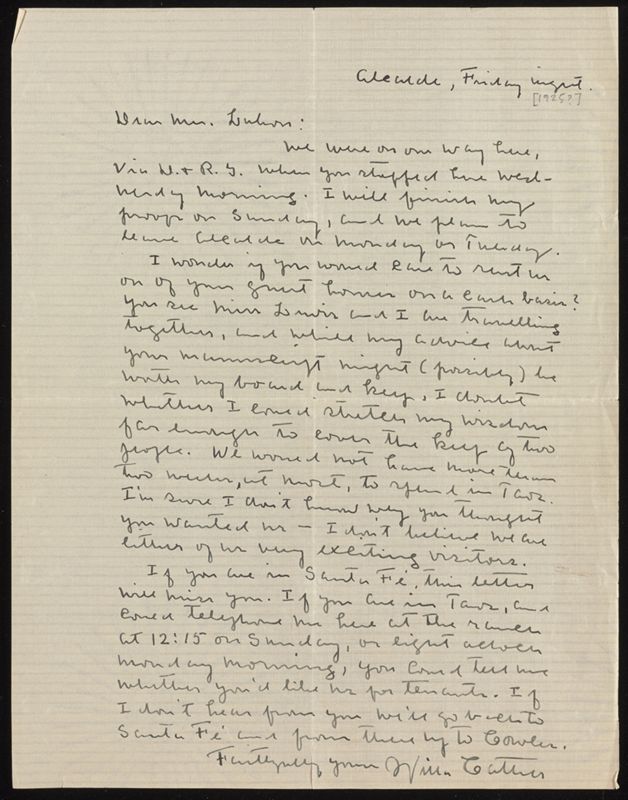 Alcalde, Friday night.
[1925?]
Dear Mrs. Luhan:
We were on our way here,
via D. & R. G. when you stopped here Wed-
nesday morning. I will finish my
proofs on Sunday, and we plan to
leave Alcalde on Monday or Tuesday.
I wonder if you would care to rent us
on of your guest houses on a cash basis?
You see Miss Lewis and I are travelling
together, and while my advice about
your manuscript might (possibly) be
worth my board and keep, I doubt
whether I could stretch my wisdom
far enough to cover the keep of two
people. We would not have more than
two weeks, at most, to spend in Taos.
I'm sure I don't know why you thought
you wanted us — I don't believe we are
either of us very exciting visitors.
If you are in Santa Fé, this letter
will miss you. If you are in Taos, and
could telephone me here at the ranch
at 12:15 on Sunday, or eight o'clock
Monday morning, you could tell me
whether you'd like us for tenants. If
I don't hear from you we'll go back to
Santa Fé and from there up to Cowles.
Faithfully yours Willa Cather